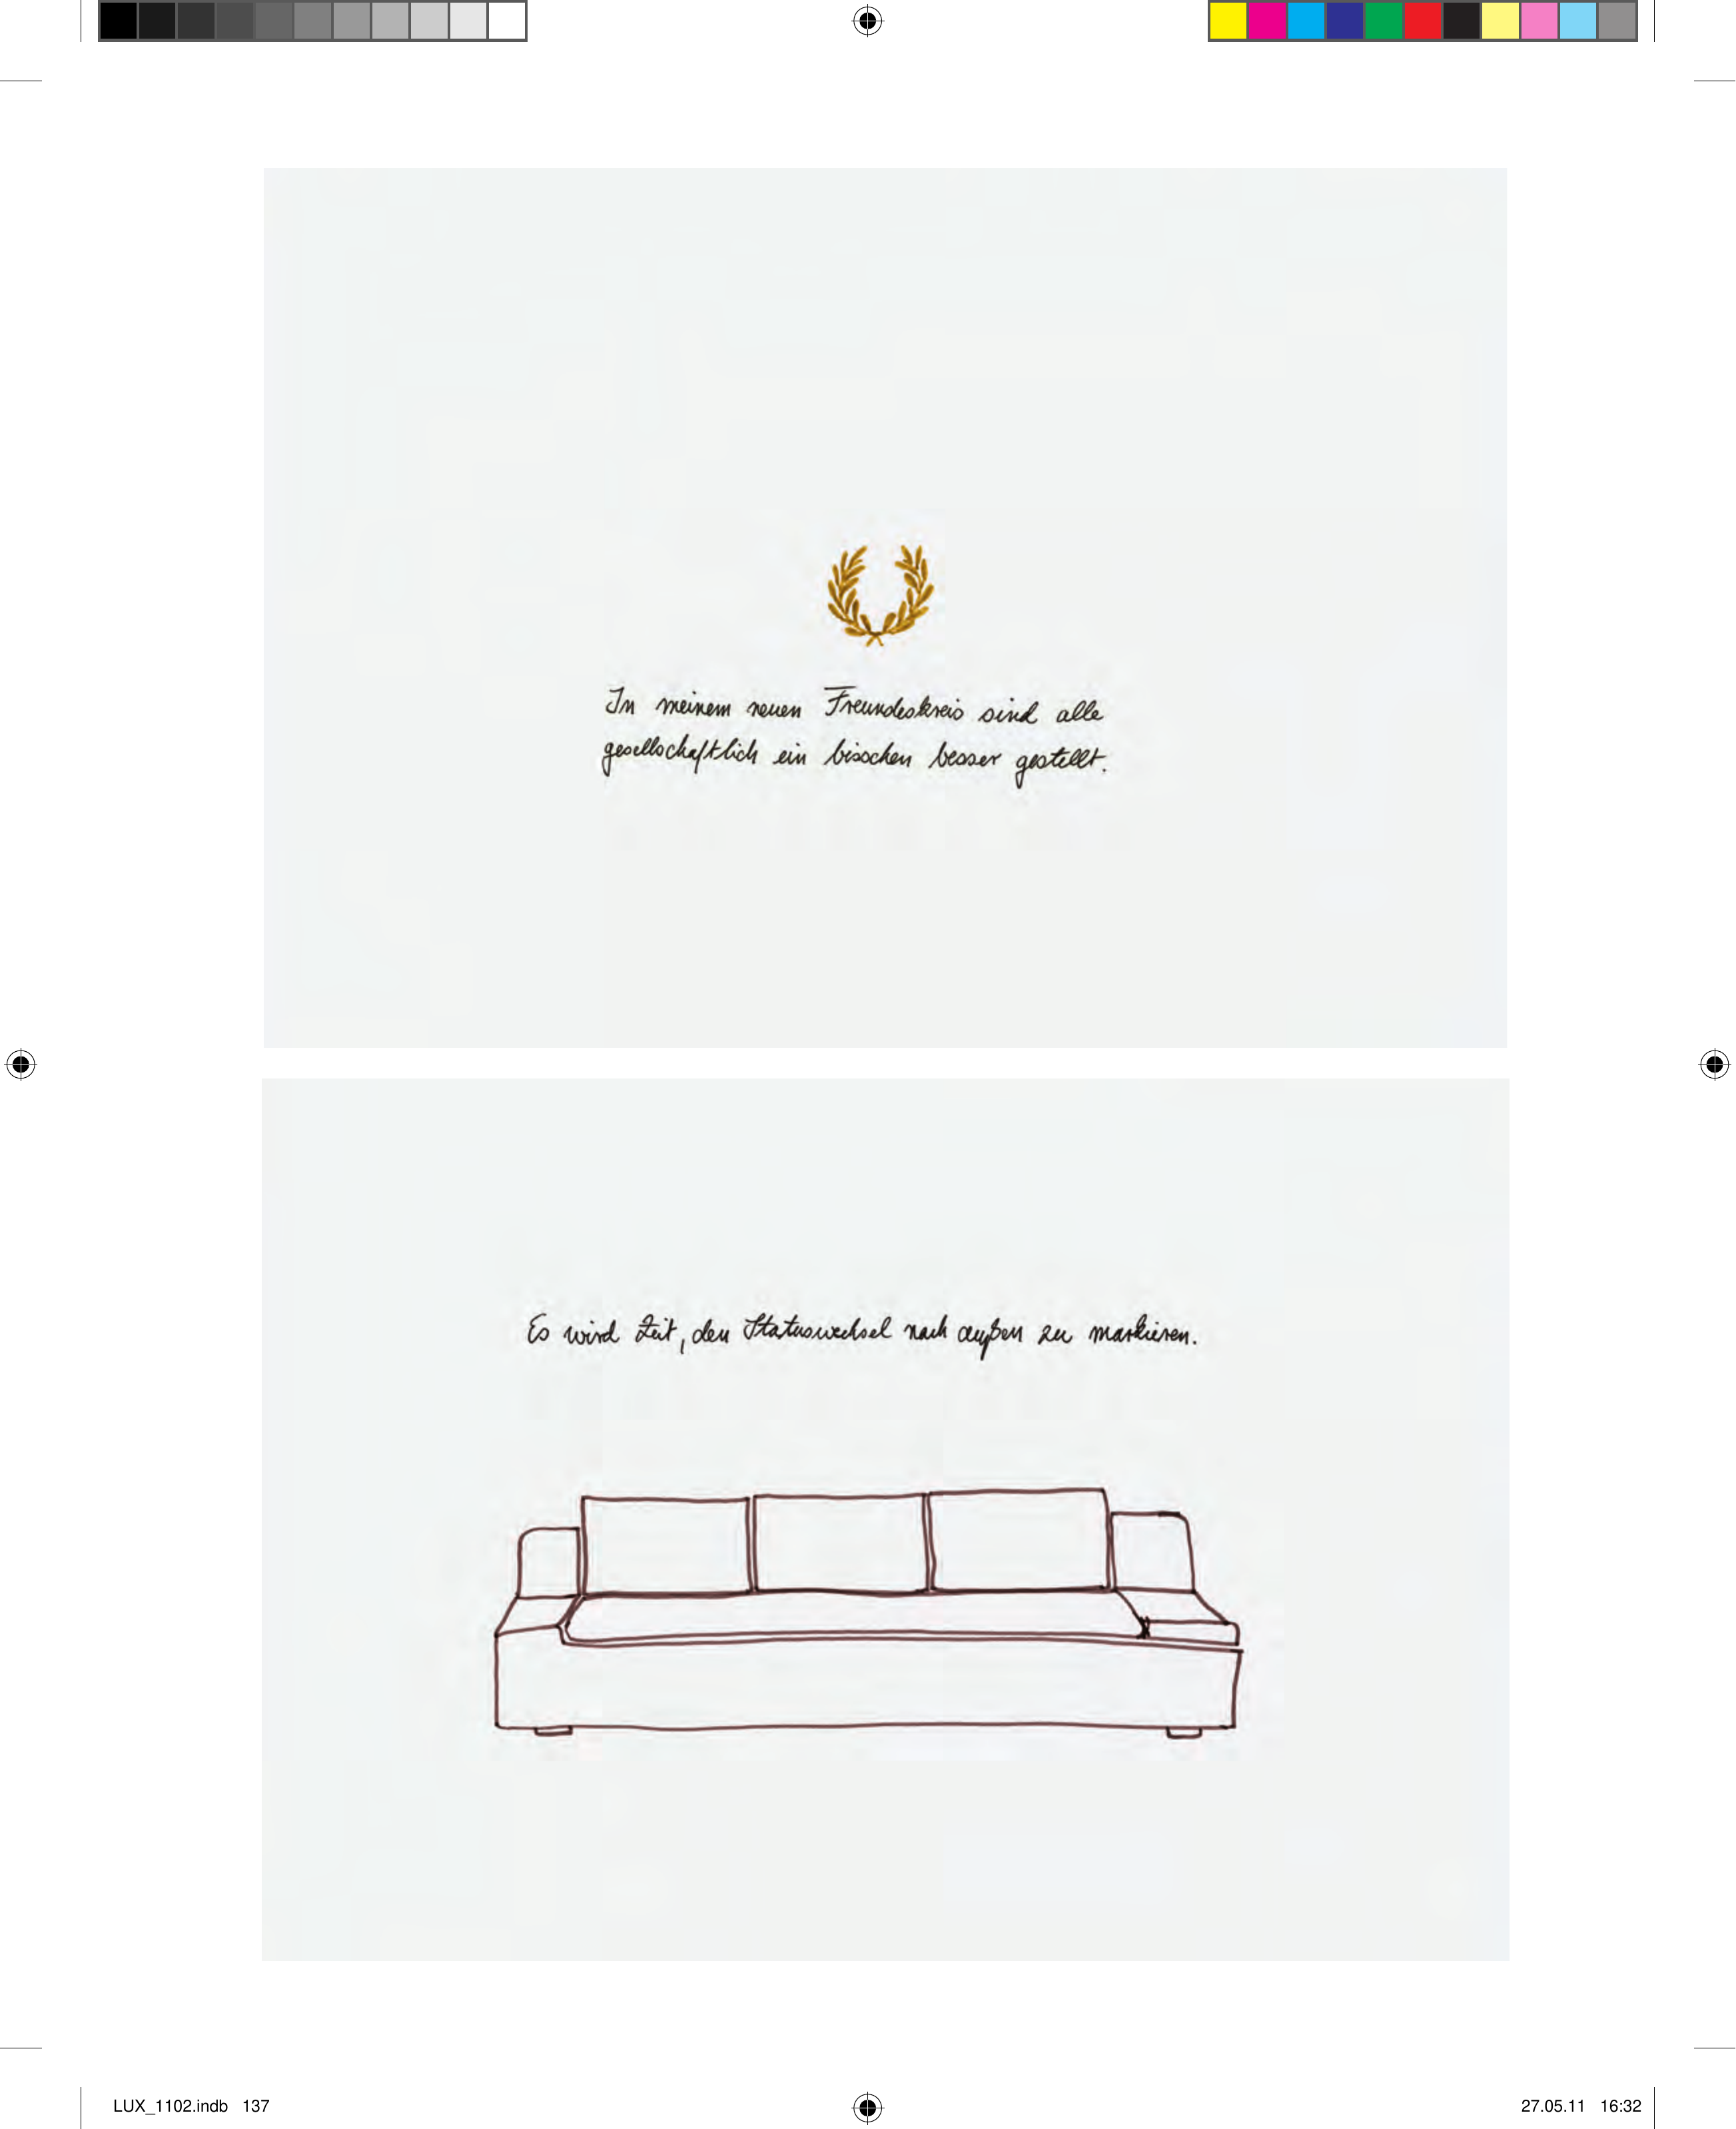 In meinem neuen Freundeskreis sind alle
gesellschaftlich ein bisschen besser gestellt.
Es wird Zeit, den Statuswechsel nach außen zu markieren.
LUX_1102.indb 137
27.05.11 16:32